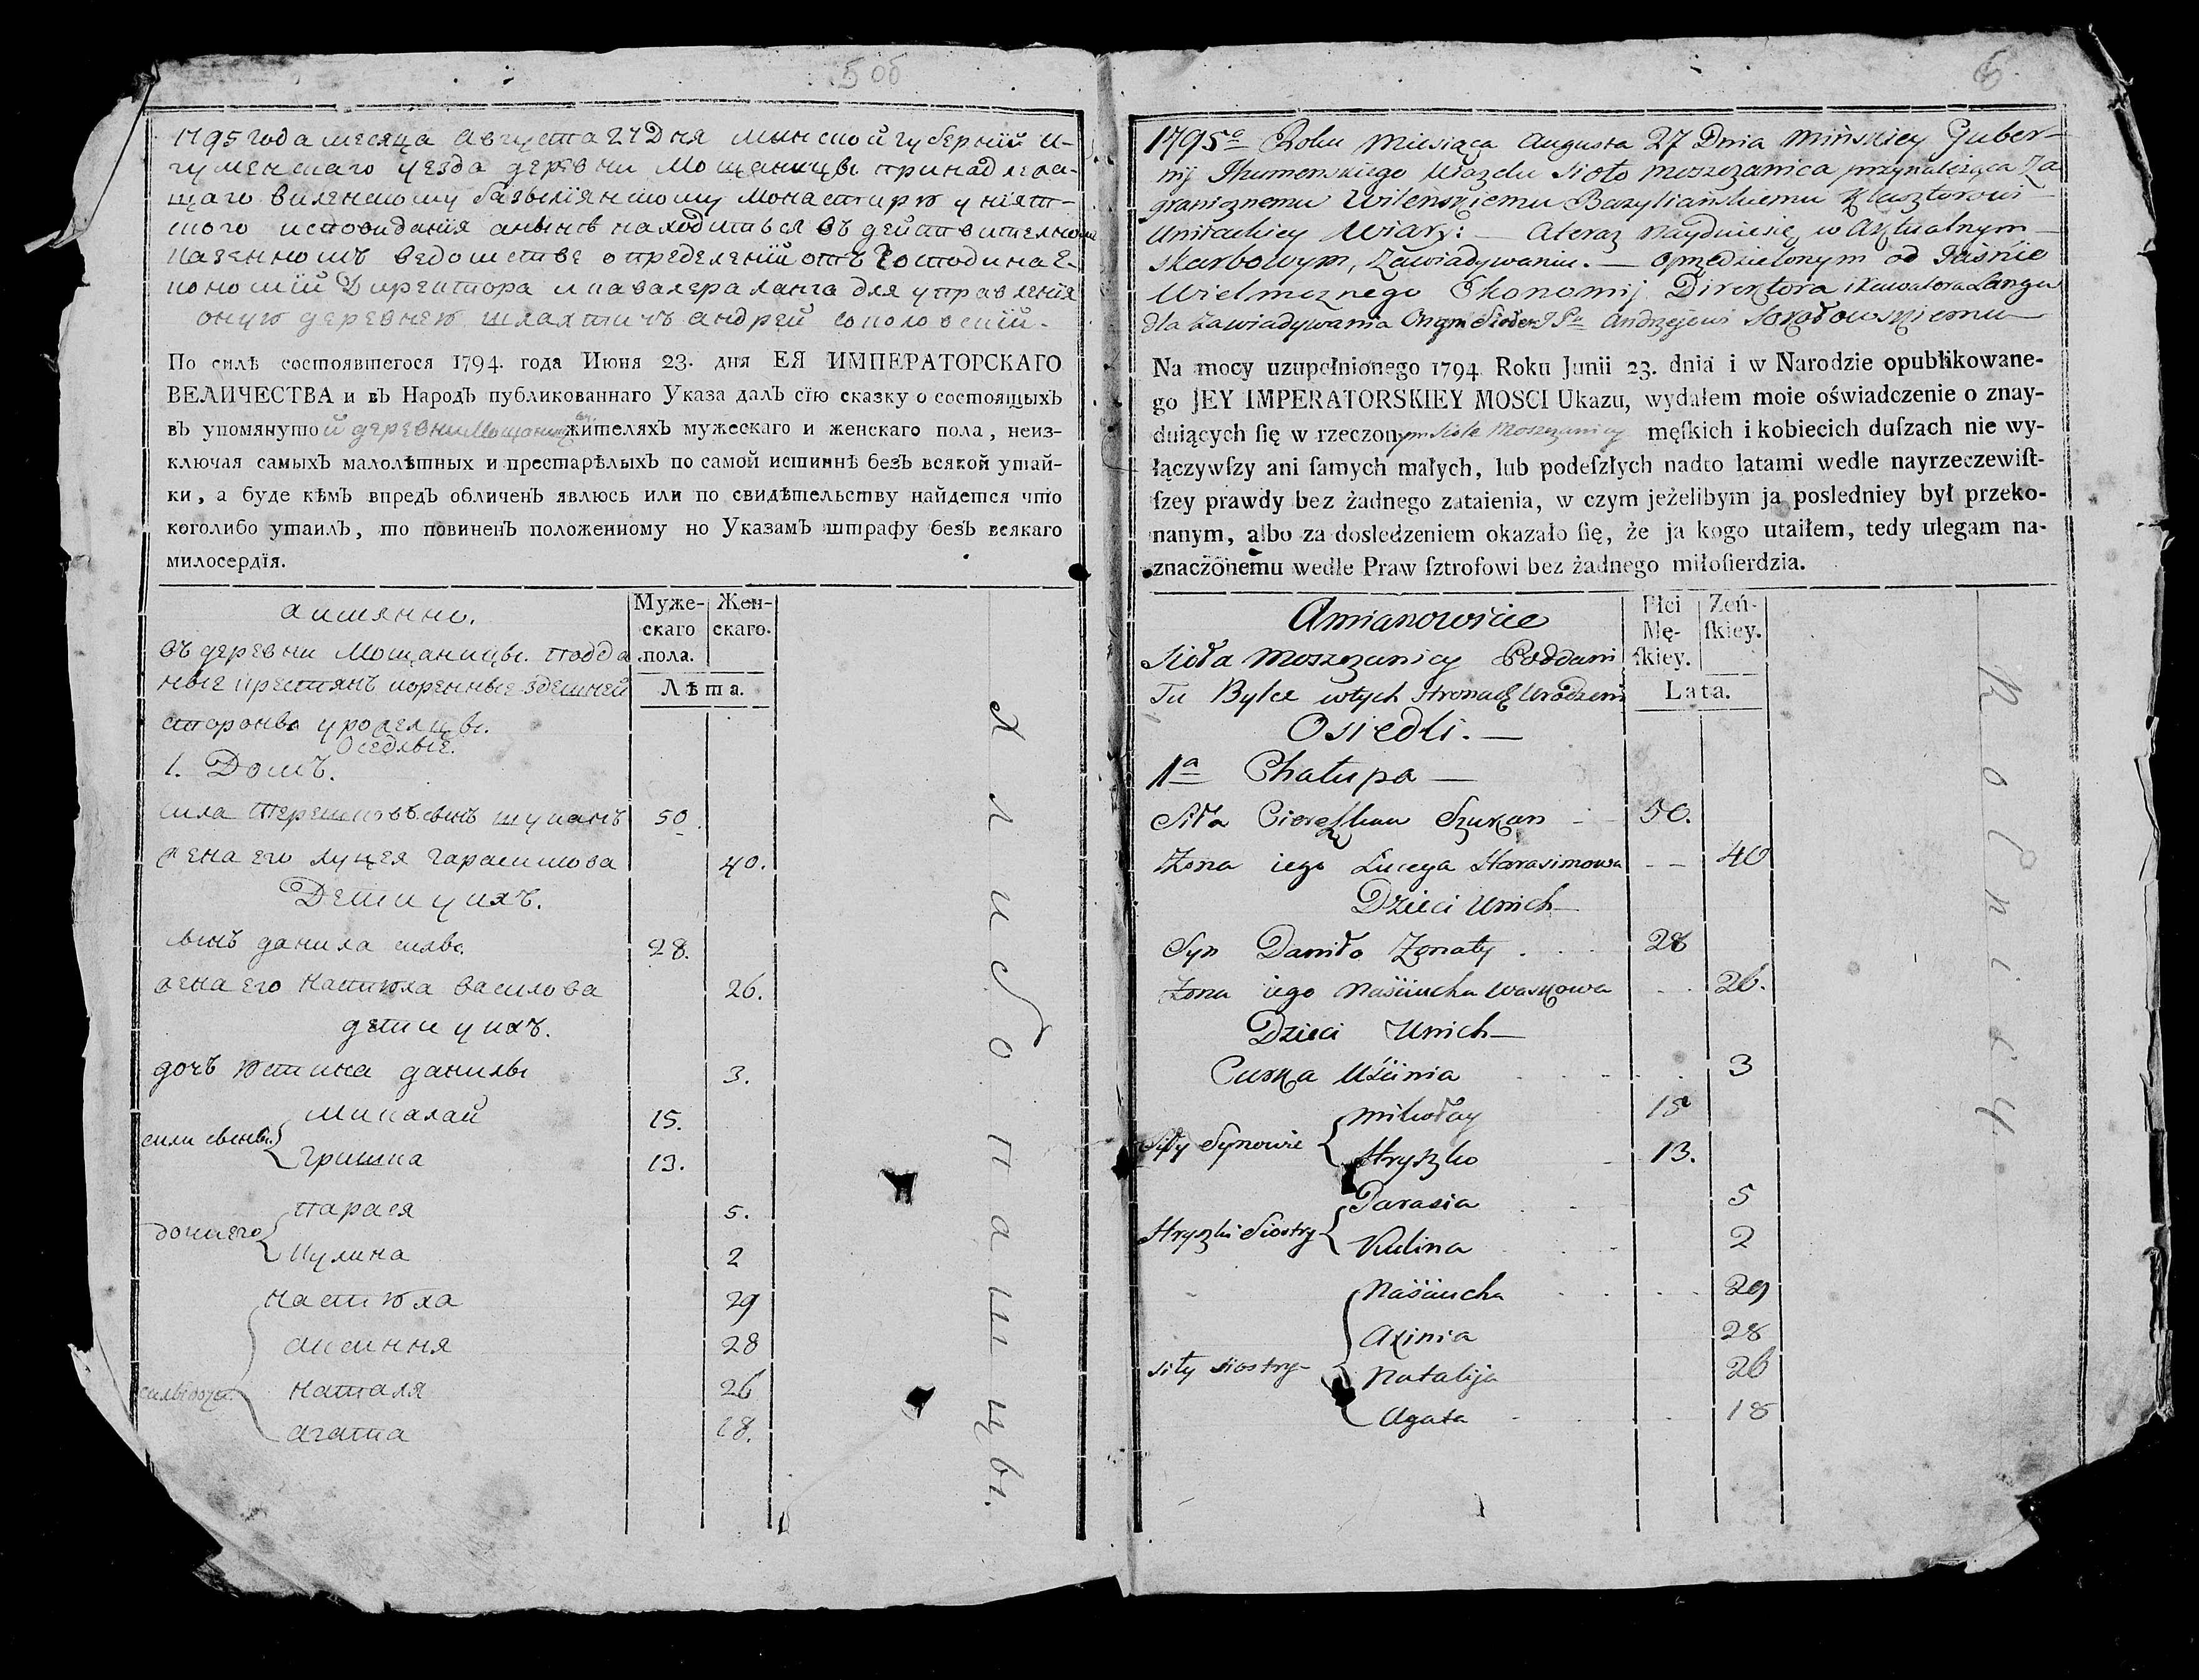 5 об
1795 года месяца Августа 27 Дня минской губернiй и-
гуменскаго уезда деревни Мощаницы принадлежа-
щаго виленскому базылiянскому монастирю унiят-
ского исповиданiя а нынѣ находиться въ действителном
казенномъ ведомстве определенiй отъ Господина Е-
кономiй Директора и кавалера Ланга для управленiя
оную деревнею шляхтичъ андрей соколовскiй.
По силѣ состоявшегося 1794. года Июня 23. дня ЕЯ ИМПЕРАТОРСКАГО
ВЕЛИЧЕСТВА и въ Народъ публикованнаго Указа далъ сїю сказку о состоящыхъ
въ упомянутой деревни Мощаницы жителяхъ мужескаго и женскаго пола, неиз-
ключая самыхъ малолѣтных и престарѣлыхъ по самой истиннѣ безъ всякой утай-
ки, а буде кѣмъ впредъ обличенъ явлюсь или по свидѣтельству найдется что
коголибо утаилъ, то повиненъ положенному по Указамъ штрафу безъ всякаго
милосердїя.
аимянно.
Муже- Жен-
скаго скаго.
пола.
Лѣта.
въ деревни Мощаницы. подда
ные крестянъ коренные здешней
стороны уроженцы.
Оседлые.
1. Домъ.
сила терешковъ сынъ шуканъ 50.
жена его луцея гарасимова 40.
Дети у ихъ.
сынъ данила силы. 28.
жена его Настюха василова 26.
дети у ихъ.
дочь юстина данилы 3.
сили сыны
миколай 15.
гришка 13.
дочи его
парася 5.
Кулина 2
силы дочи
настюха 29
аксиння 28
наталя 26
агата 18.
Хлибопашцы.
6.
1795º Roku Miesiąca Augusta 27 Dnia Mińskiey Guber-
nij Ihumenskiego Uiazdu Sioło Moszczanica przynależąca Za
granicznemu Wileńskiemu Bazyliańskiemu Klasztorowi
Uniiackiey Wiary: — Ateraz Nayduie się w Aktualnym —
Skarbowym, Zawiadywaniu. — Oprzedzielonym od Jaśnie
Wielmoznego Ekonomij Direktora i Kawalera Langu
dla Zawiadywania Onym Siołem JPn Andrzejewi Sokołowskiemu
Na mocy uzupełnionego 1794 Roku Junii 23. dnia i w Narodzie opublikowane-
go JEY IMPERATORSKIEY MOSCI Ukazu, wydałem moie oświadczenie o znay-
duiących ſię w rzeczonym Siole Moszczanicy męſkich i kobiecich duſzach nie wy-
łączywſzy ani ſamych małych, lub podeſzłych nadto latami wedle nayrzeczewiſt-
ſzey prawdy bez żadnego zataienia, w czym jeżelibym ja posledniey był przeko-
nanym, albo za dosledzeniem okazało ſię, że ja kogo utaiłem, tedy ulegam na-
znaczonemu wedle Praw ſztrofowi bez żadnego miłoſierdzia.
Amianowicie
Płci Zeń-
Mę- ſkiey.
ſkiey.
Lata.
Sioła Moszczanicy Poddani
Tu Bylce w tych Stronach Urodzeni
Osiedli. —
1ª Chałupa —
Siła Cioreszkow Szukan 50.
Żona iego Luceya Harasimowa 40
Dzieci Unich
Syn Daniło Żonaty 28
Żona iego Naściucha Waskowa 26.
Dzieci Unich
Curka Uścinia 3
Siły Synowie
Mikołay 15
Hryszko 13.
Hryszki Siostry
Parasia 5
Kulina 2
siły siostry
Naściucha 29
Axinia 28
Natalija 26
Agata 18
Rolnicy.